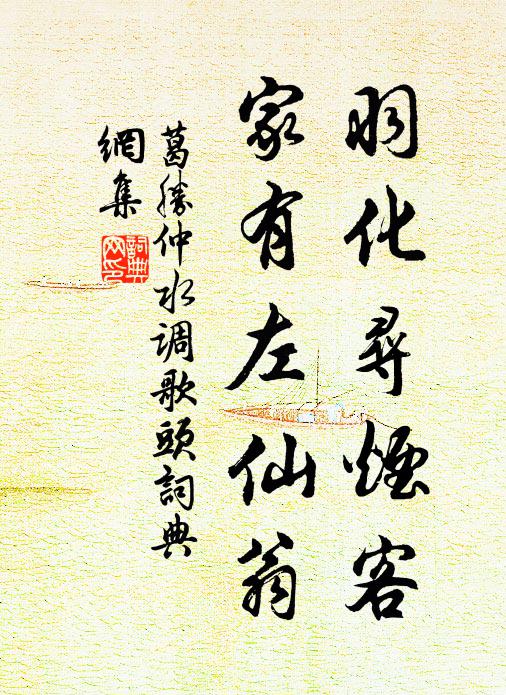 羽化尋煙客
家有左仙翁
葛勝仲水调歌頭詞典
網集
詞典
网印